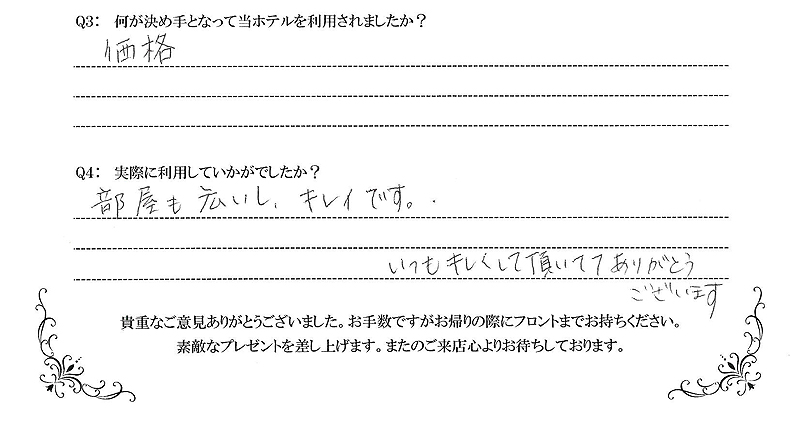 Q3： 何が決め手となって当ホテルを利用されましたか？
価格
Q4： 実際に利用していかがでしたか？
部屋も広いし、キレイです。
いつもキレくして頂いててありがとう
ございます
貴重なご意見ありがとうございました。お手数ですがお帰りの際にフロントまでお持ちください。
素敵なプレゼントを差し上げます。またのご来店心よりお待ちしております。